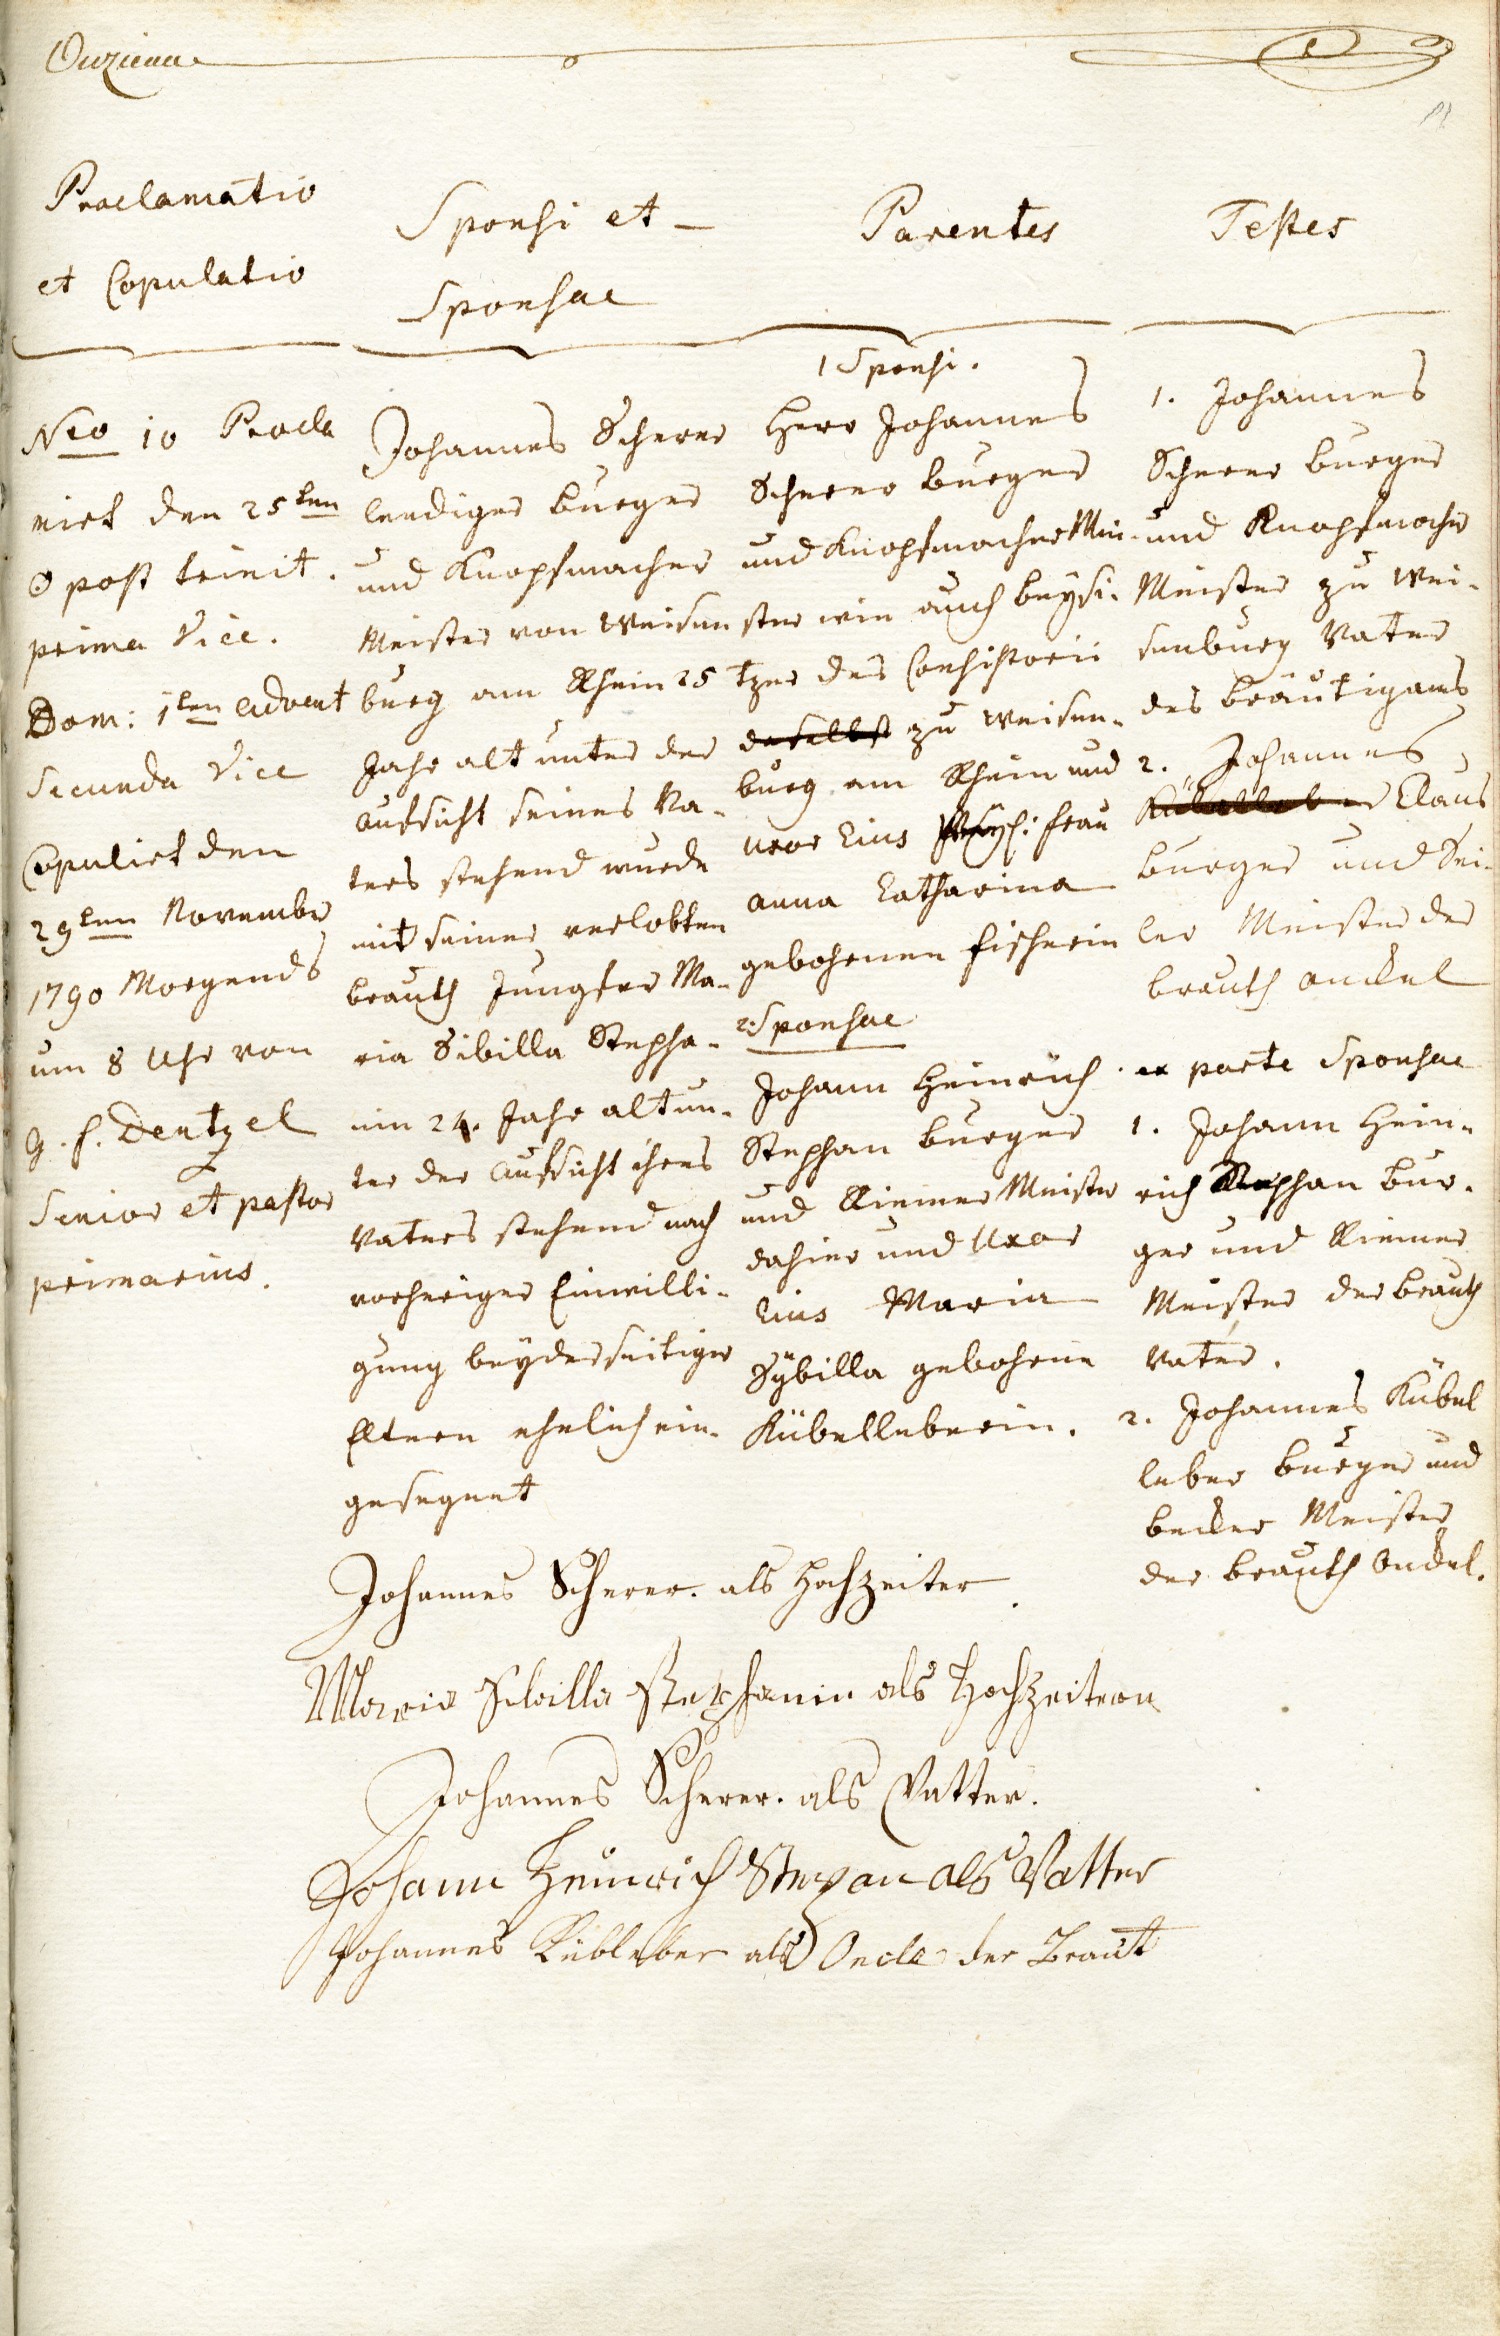 Proclamatio
et Copulatio
Sponsi et
Sponsae
Parentes
Testes
Nro 10 Procla
mirt den 25ten
☉ post trinit.
prima Vice.
Dom: 1ten advent
Secunda Vice
Copulirt den
29ten Novembr
1790 Morgends
um 8 Uhr von
G. F. Dentzel
Senior et pastor
primarius.
Johannes Scherer
leediger burger
und Knopfmacher
Meister von Weisen
burg am Rhein 25
Jahr alt unter der
aufsicht seines Va-
ters stehend wurde
mit seiner verlobten
brauth Jungfer Ma-
ria Sibilla Stepha-
nin 24. Jahr alt un-
ter der aufsicht ihres
Vaters stehend nach
vorheriger Einwilli-
gung beyderseitiger
Eltern ehelich ein-
gesegnet
1 Sponsi.
Herr Johannes
Scherer burger
und Knopfmacher Mei-
ster wie auch beysi-
tzer des Consistorii
daselbst zu Weisen-
burg am Rhein und
uxor Eius frau
anna Catharina
gebohrnen fischerin
2. Sponsae
Johann Heinrich
Stephan burger
und Riemer Meister
dahier und Uxor
Eius Maria
Sÿbilla gebohrne
Kübelleberin.
1. Johannes
Scherer burger
und Knopfmacher
Meister zu Wei-
senburg Vater
des bräutigams
2. Johannes
Claus
burger und Sei-
ler Meister der
brauth onckel
ex parte Sponsae
1. Johann Hein-
rich Stephan bur-
ger und Riemer
Meister der brauth
Vater.
2. Johannes Kübel
leber burger und
becker Meister
der brauth Onckel.
Johannes Scherer. als Hochzeiter
Maria Sibilla Stephanin als Hochzeitern
Johannes Scherer. als Vatter.
Johann Heinrich Stepan als Vatter
Johannes Kübleber als Oncle der Braut